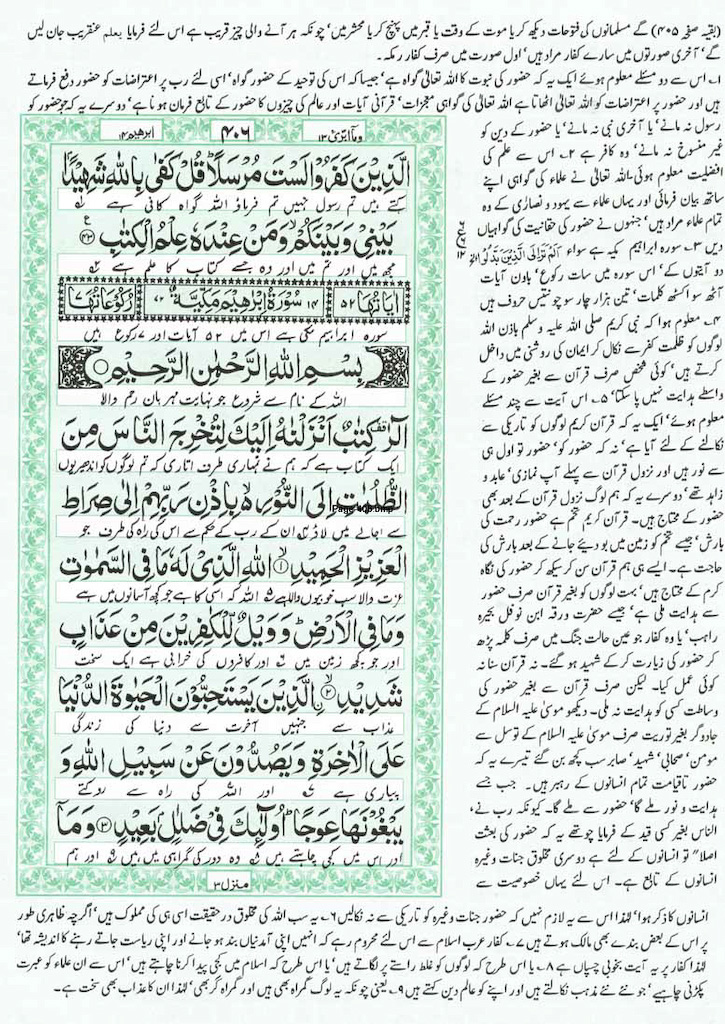 (بقیہ صفحہ ۴۰۵) گے مسلمانوں کی فتوحات دیکھ کر یا موت کے وقت یا قبر میں پہنچ کر یا محشر میں' چونکہ ہر آنے والی چیز قریب ہے اس لئے فرمایا یعلم عنقریب جان لیں
گے' آخری صورتوں میں سارے کفار مراد ہیں' اول صورت میں صرف کفار مکہ۔
۱۔ اس سے دو مسئلے معلوم ہوئے ایک یہ کہ حضور کی نبوت کا اللہ تعالیٰ گواہ ہے' جیسا کہ اس کی توحید کے حضور گواہ' اسی لئے رب پر اعتراضات کو حضور دفع فرماتے
ہیں اور حضور پر اعتراضات کو اللہ تعالیٰ اٹھاتا ہے اللہ تعالیٰ کی گواہی معجزات' قرآنی آیات اور عالم کی چیزوں کا حضور کے تابع فرمان ہونا ہے' دوسرے یہ کہ جو حضور کو
رسول نہ مانے' یا آخری نبی نہ مانے' یا حضور کے دین کو
غیر منسوخ نہ مانے' وہ کافر ہے ۲۔ اس سے علم کی
افضلیت معلوم ہوئی۔ اللہ تعالیٰ نے علماء کی گواہی اپنے
ساتھ بیان فرمائی اور یہاں علماء سے یہود و نصاریٰ کے وہ
تمام علماء مراد ہیں' جنہوں نے حضور کی حقانیت کی گواہیاں
دیں ۳۔ سورہ ابراہیم مکیہ ہے سواء اَلَمْ تَرَ اِلَى الَّذِيْنَ بَدَّلُوْا الخ
دو آیتوں کے' اس سورہ میں سات رکوع' باون آیات
آٹھ سو اکسٹھ کلمات' تین ہزار چار سو چونتیس حروف ہیں
۴۔ معلوم ہوا کہ نبی کریم صلی اللہ علیہ وسلم باذن اللہ
لوگوں کو ظلمت کفر سے نکال کر ایمان کی روشنی میں داخل
کرتے ہیں' کوئی شخص صرف قرآن سے بغیر حضور کے
واسطے ہدایت نہیں پا سکتا' ۵۔ اس آیت سے چند مسئلے
معلوم ہوئے' ایک یہ کہ قرآن کریم لوگوں کو تاریکی سے
نکالنے کے لئے آیا ہے' نہ کہ حضور کو' حضور تو اول ہی
سے نور ہیں اور نزول قرآن سے پہلے آپ نمازی' عابد و
زاہد تھے' دوسرے یہ کہ ہم لوگ نزول قرآن کے بعد بھی
حضور کے محتاج ہیں۔ قرآن کریم تخم ہے حضور رحمت کی
بارش' جیسے تخم کو زمین میں بو دیئے جانے کے بعد بارش کی
حاجت ہے۔ ایسے ہی ہم قرآن سن کر سیکھ کر حضور کی نگاہ
کرم کے محتاج ہیں' بہت لوگوں کو بغیر قرآن صرف حضور
سے ہدایت ملی ہے' جیسے حضرت ورقہ ابن نوفل بحیرہ
راہب' یا وہ کفار جو عین حالت جنگ میں صرف کلمہ پڑھ
کر حضور کی زیارت کر کے شہید ہو گئے۔ نہ قرآن سنا نہ
کوئی عمل کیا۔ لیکن صرف قرآن سے بغیر حضور کی
وساطت کسی کو ہدایت نہ ملی۔ دیکھو موسیٰ علیہ السلام کے
جادوگر بغیر توریت صرف موسیٰ علیہ السلام کے توسل سے
مومن' صحابی' شہید' صابر سب کچھ بن گئے تیسرے یہ کہ
حضور تاقیامت تمام انسانوں کے رہبر ہیں۔ جب جسے
ہدایت و نور ملے گا' حضور سے ملے گا۔ کیونکہ رب نے'
الناس بغیر کسی قید کے فرمایا چوتھے یہ کہ حضور کی بعثت
اصلا" تو انسانوں کے لئے ہے دوسری مخلوق جنات وغیرہ
انسانوں کے تابع ہے۔ اس لئے یہاں خصوصیت سے
وما ابرئ ۱۳ ۴۰۶ ابراھیم ۱۴
الَّذِيْنَ كَفَرُوْا لَسْتَ مُرْسَلًا ؕ قُلْ كَفٰى بِاللّٰهِ شَهِيْدًۢا
کہتے ہیں تم رسول نہیں تم فرماؤ اللہ گواہ کافی ہے
بَيْنِيْ وَبَيْنَكُمْ ۙ وَمَنْ عِنْدَهٗ عِلْمُ الْكِتٰبِ ﴿۴۳﴾
مجھ میں اور تم میں اور وہ جسے کتاب کا علم ہے
اٰيَاتُهَا ۵۲ ۱۴ سُوْرَةُ اِبْرٰهِيْمَ مَكِّيَّةٌ ۷۲ رُكُوْعَاتُهَا ۷
سورہ ابراہیم مکی ہے اس میں ۵۲ آیات اور ۷ رکوع ہیں
بِسْمِ اللّٰهِ الرَّحْمٰنِ الرَّحِيْمِ
اللہ کے نام سے شروع جو نہایت مہربان رحم والا
الٓرٰ ۫ كِتٰبٌ اَنْزَلْنٰهُ اِلَيْكَ لِتُخْرِجَ النَّاسَ مِنَ
ایک کتاب ہے کہ ہم نے تمہاری طرف اتاری کہ تم لوگوں کو اندھیریوں
الظُّلُمٰتِ اِلَى النُّوْرِ ۙ بِاِذْنِ رَبِّهِمْ اِلٰى صِرَاطِ
سے اجالے میں لاؤ ان کے رب کے حکم سے اس کی راہ کی طرف جو
الْعَزِيْزِ الْحَمِيْدِ ﴿۱﴾ اللّٰهِ الَّذِيْ لَهٗ مَا فِي السَّمٰوٰتِ
عزت والا سب خوبیوں والا ہے اللہ کہ اسی کا ہے جو کچھ آسمانوں میں ہے
وَمَا فِي الْاَرْضِ ؕ وَوَيْلٌ لِّلْكٰفِرِيْنَ مِنْ عَذَابٍ
اور جو کچھ زمین میں اور کافروں کی خرابی ہے ایک سخت
شَدِيْدِ ﴿۲﴾ الَّذِيْنَ يَسْتَحِبُّوْنَ الْحَيٰوةَ الدُّنْيَا
عذاب سے جنہیں آخرت سے دنیا کی زندگی
عَلَى الْاٰخِرَةِ وَيَصُدُّوْنَ عَنْ سَبِيْلِ اللّٰهِ وَ
پیاری ہے اور اللہ کی راہ سے روکتے
يَبْغُوْنَهَا عِوَجًا ؕ اُولٰٓئِكَ فِيْ ضَلٰلٍۭ بَعِيْدٍ ﴿۳﴾ وَمَاۤ
اور اس میں کجی چاہتے ہیں وہ دور کی گمراہی میں ہیں اور ہم
منزل ۳
انسانوں کا ذکر ہوا' لہٰذا اس سے یہ لازم نہیں کہ حضور جنات وغیرہ کو تاریکی سے نہ نکالیں ۶۔ یہ سب اللہ کی مخلوق در حقیقت اسی ہی کی مملوک ہیں' اگرچہ ظاہری طور
پر اس کے بعض بندے بھی مالک ہوتے ہیں ۷۔ کفار عرب اسلام سے اس لئے محروم رہے کہ انہیں اپنی آمدنیاں بند ہو جانے اور اپنی ریاست جاتے رہنے کا اندیشہ تھا'
لہٰذا کفار پر یہ آیت بخوبی چسپاں ہے ۸۔ یا اس طرح کہ لوگوں کو غلط راستے پر لگاتے ہیں' یا اس طرح کہ اسلام میں کجی پیدا کرنا چاہتے ہیں' اس سے ان علماء کو عبرت
پکڑنی چاہیے' جو نئے نئے مذہب نکالتے ہیں اور اپنے کو عالم دین کہتے ہیں ۹۔ یعنی چونکہ یہ لوگ گمراہ بھی ہیں اور گمراہ گر بھی' لہٰذا ان کا عذاب بھی سخت ہے۔